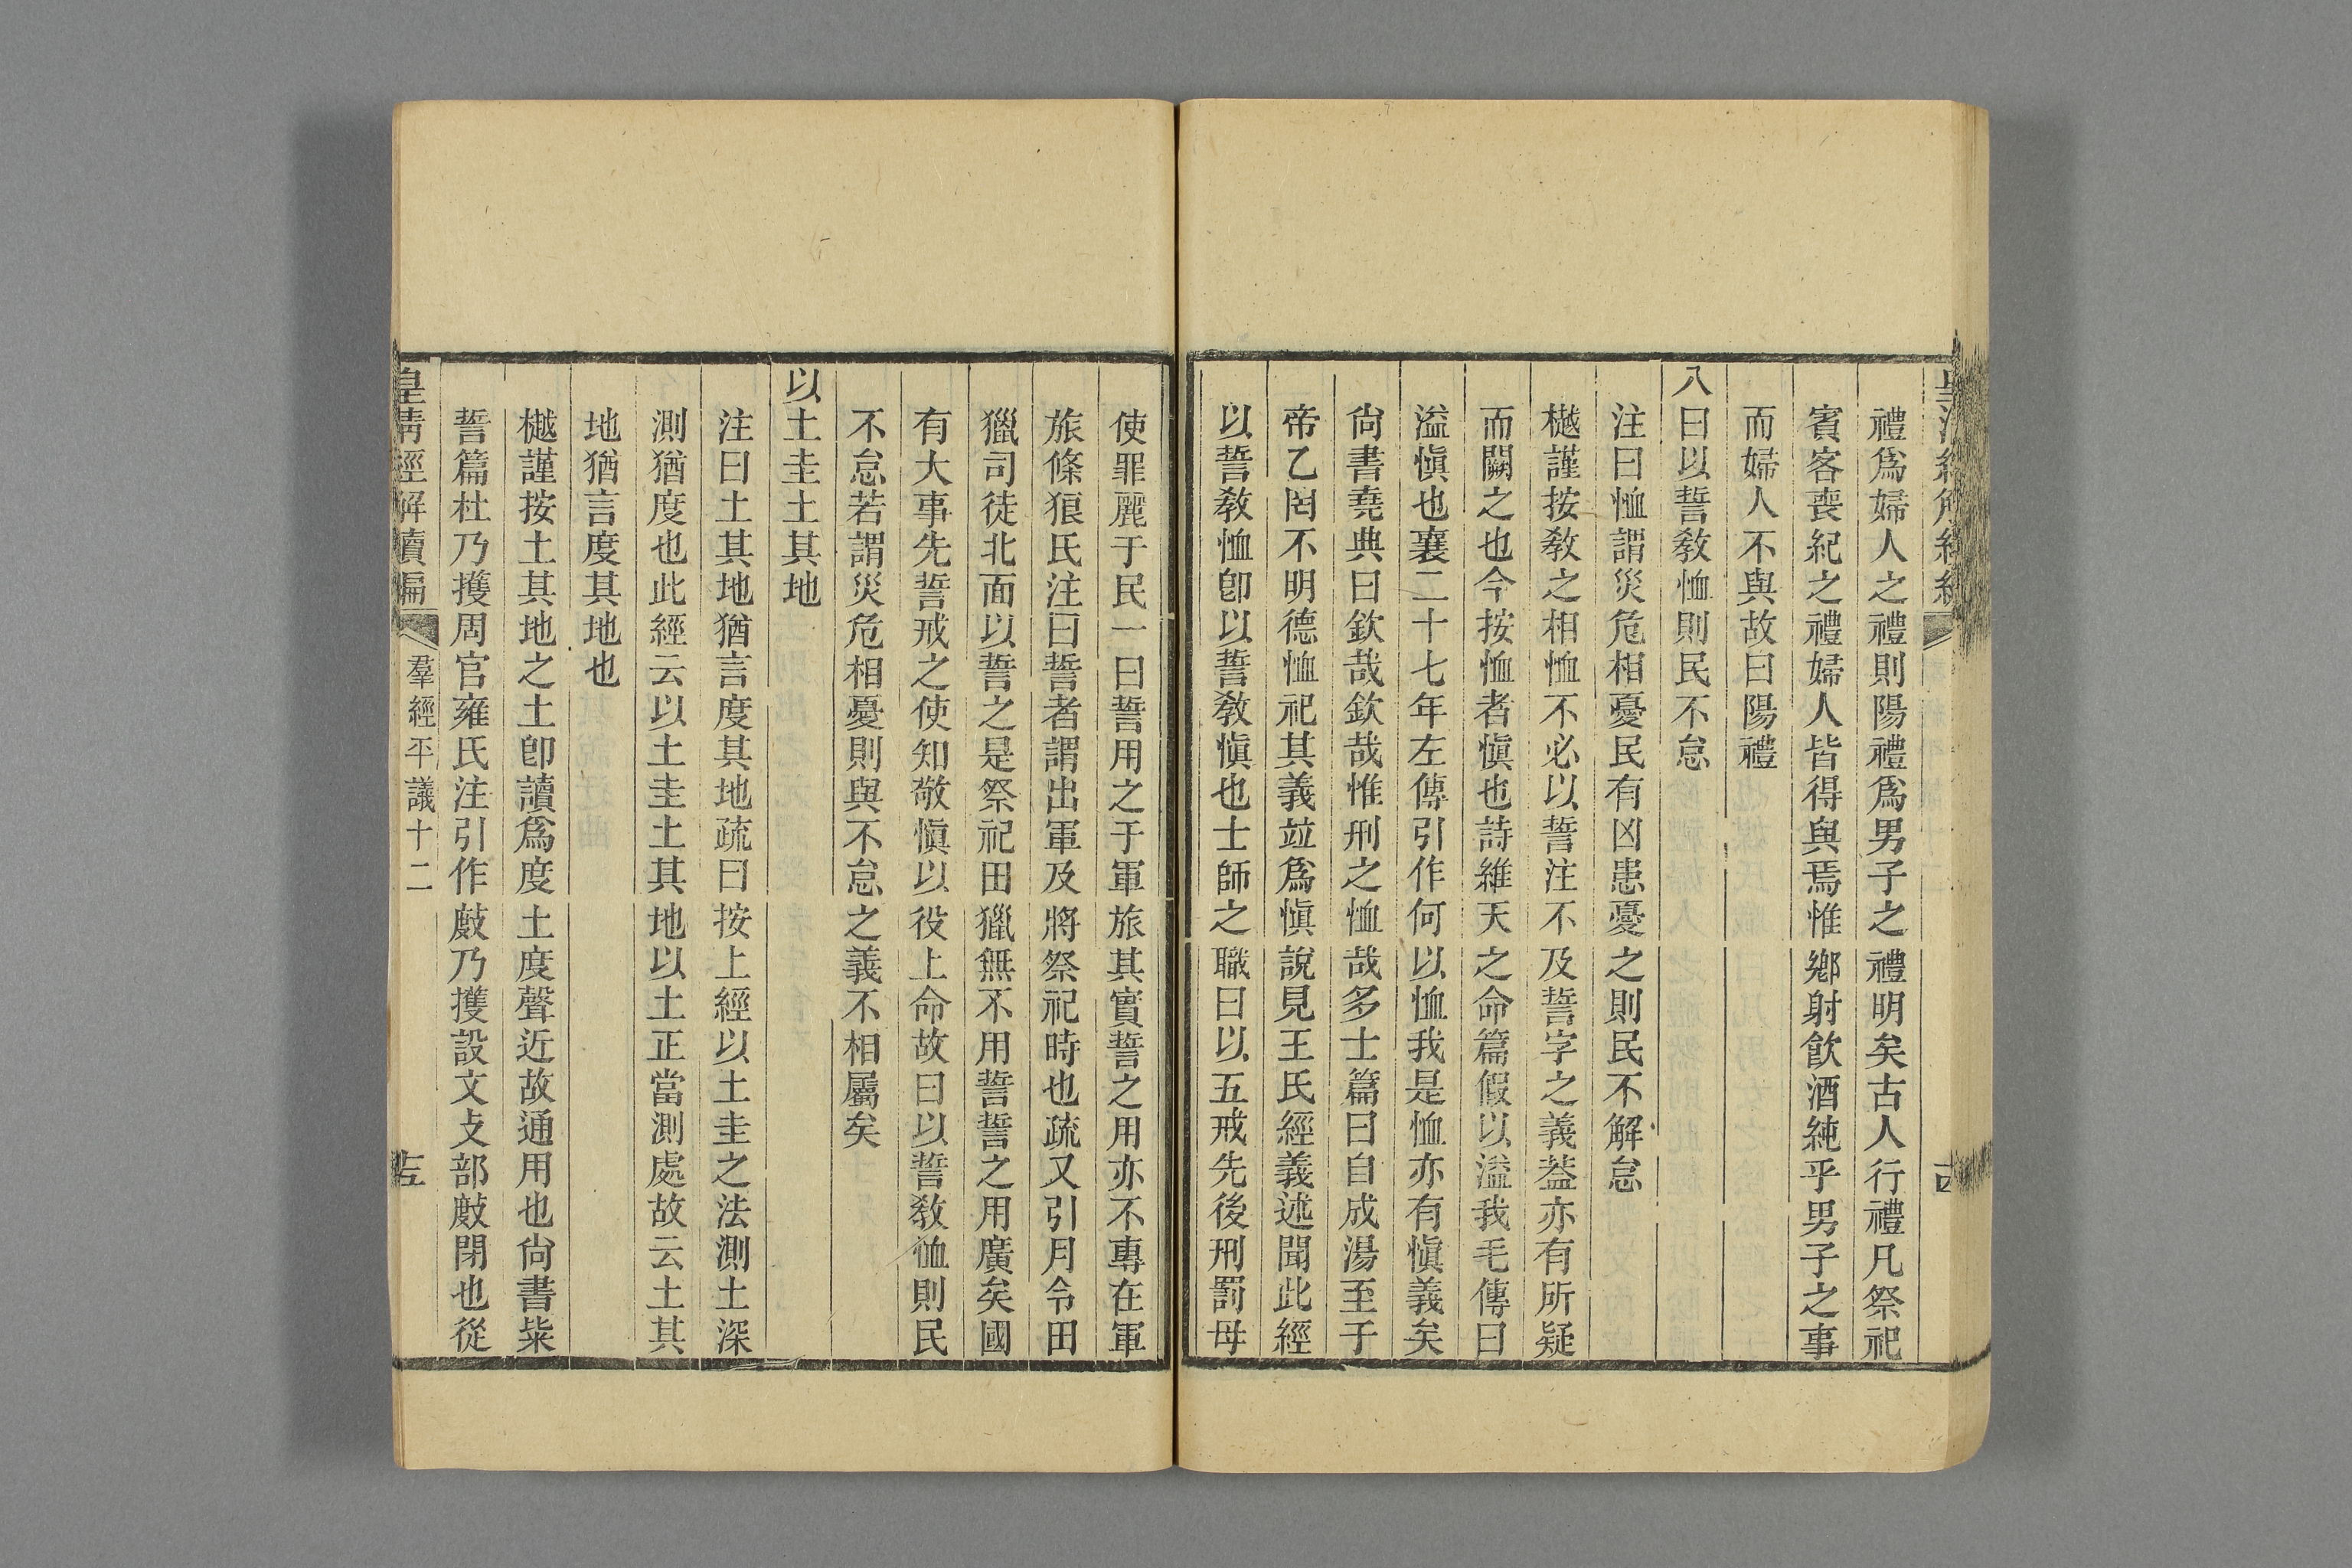 禮爲婦人之禮則陽禮爲男子之禮明矣古人行禮凡祭祀
賓客喪紀之禮婦人皆得與焉惟鄉射飮酒純乎男子之事
而婦人不與故曰陽禮
八曰以誓敎恤則民不怠
注曰恤謂災危相憂民有凶患憂之則民不解怠
樾謹按敎之相恤不必以誓注不及誓字之義葢亦有所疑
而闕之也今按恤者愼也詩維天之命篇假以溢我毛傳曰
溢愼也襄二十七年左傳引作何以恤我是恤亦有愼義矣
尙書堯典曰欽哉欽哉惟刑之恤哉多士篇曰自成湯至于
帝乙罔不明德恤祀其義竝爲愼說見王氏經義述聞此經
以誓敎恤卽以誓敎愼也士師之職曰以五戒先後刑罰毋
使罪麗于民一曰誓用之于軍旅其實誓之用亦不專在軍
旅條狼氏注曰誓者謂出軍及將祭祀時也疏又引月令田
獵司徒北面以誓之是祭祀田獵無不用誓誓之用廣矣國
有大事先誓戒之使知敬愼以役上命故曰以誓敎恤則民
不怠若謂災危相憂則與不怠之義不相屬矣
以土圭土其地
注曰土其地猶言度其地疏曰按上經以土圭之法測土深
測猶度也此經云以土圭土其地以土正當測處故云土其
地猶言度其地也
樾謹按土其地之土卽讀爲度土度聲近故通用也尙書粊
誓篇杜乃擭周官雍氏注引作敷乃擭說文攴部敷閉也從
皇淸經解續編
羣經平議十二